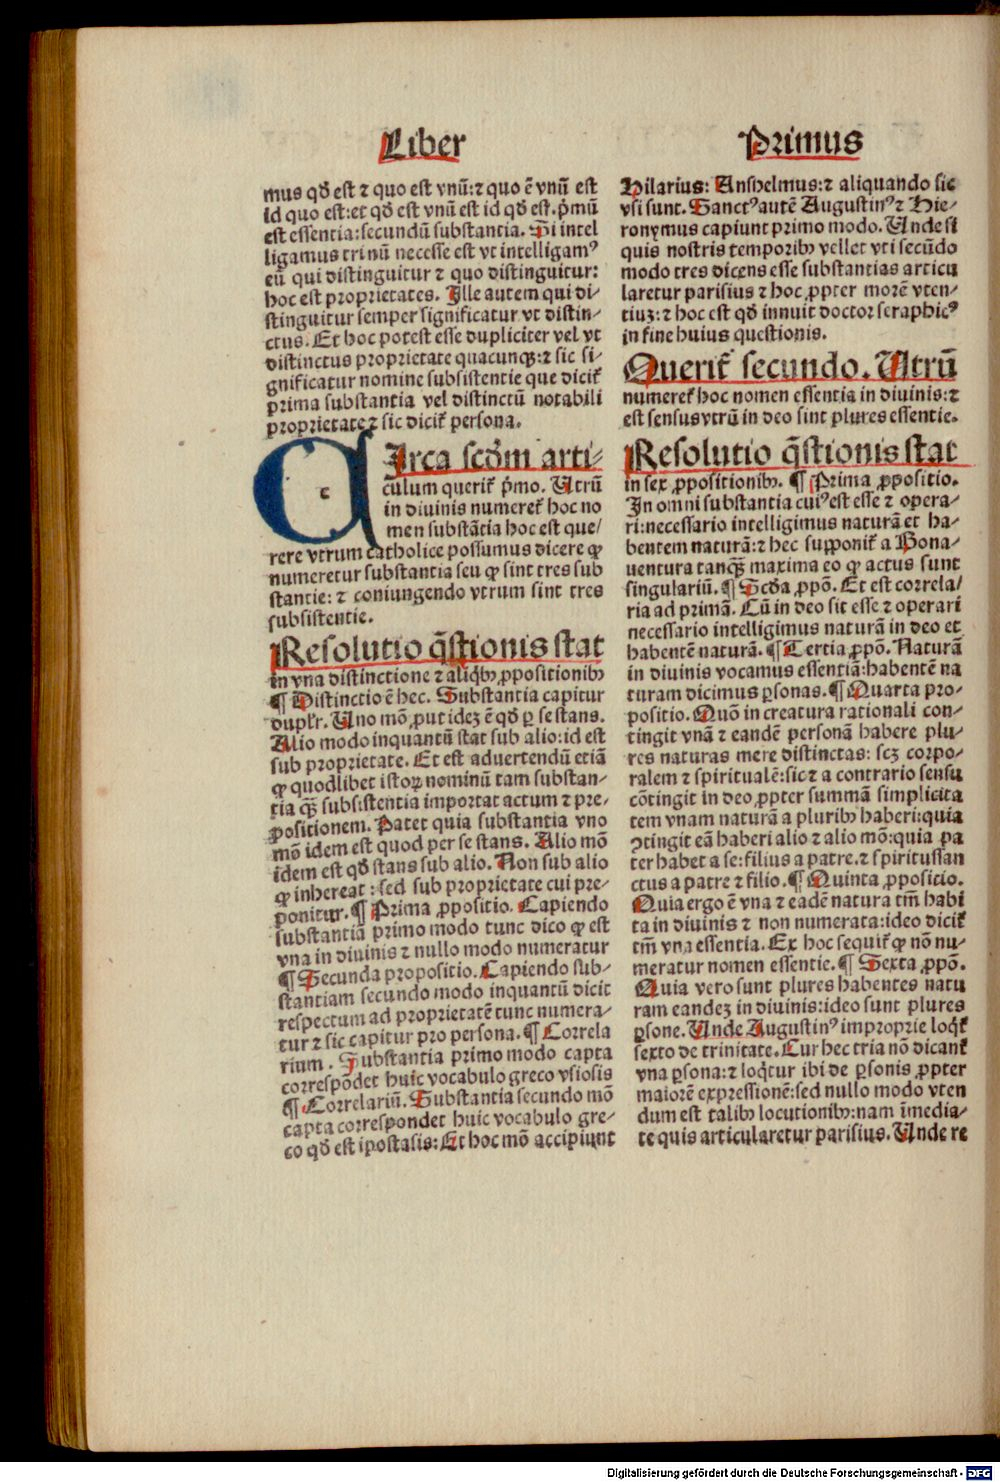 Liber
mus qđ est ⁊ quo est vnū:⁊ quo ē vnū est
id quo est:et qđ est vnū est id qđ est.p̄mū
est essentia:secundū substantia. Si intel
ligamus trinū necesse est vt intelligamꝰ
eū qui distinguitur ⁊ quo distinguitur:
hoc est proprietates. Ille autem qui di-
stinguitur semper significatur vt distin-
ctus. Et hoc potest esse dupliciter vel vt
distinctus proprietate quacunqꝫ:⁊ sic si-
gnificatur nomine subsistentie que dicit᷑
prima substantia vel distinctū notabili
proprietate⁊ sic dicit᷑ persona.
c
Irca scđm arti-
culum querit᷑ p̄mo. Utrū
in diuinis numeret᷑ hoc no
men substātia hoc est que/
rere vtrum catholice possumus dicere ꝙ
numeretur substantia seu ꝙ sint tres sub
stantie: ⁊ coniungendo vtrum sint tres
subsistentie.
Resolutio q̄stionis stat
in vna distinctione ⁊ aliqͥbꝰ ꝓpositionibꝰ
¶ Distinctio ē hec. Substantia capitur
duplr̄. Uno mō ꝓut ideꝫ ē qđ ꝑ se stans.
Alio modo inquantū stat sub alio:id est
sub proprietate. Et est aduertendū etiā
ꝙ quodlibet istoꝝ nominū tam substan-
tia qꝫ̄ subsistentia importat actum ⁊ pre-
positionem. Patet quia substantia vno
mō idem est quod per se stans. Alio mō
idem est qđ stans sub alio. Non sub alio
ꝙ inhereat : sed sub proprietate cui pre-
ponitur.¶ Prima ꝓpositio. Capiendo
substantiā primo modo tunc dico ꝙ est
vna in diuinis ⁊ nullo modo numeratur
¶ Secunda propositio. Capiendo sub-
stantiam secundo modo inquantū dicit
respectum ad proprietatē tunc numera-
tur ⁊ sic capitur pro persona.¶ Correla
rium . Substantia primo modo capta
correspōdet huic vocabulo greco vsiosis
¶ Correlariū. Substantia secundo mō
capta correspondet huic vocabulo gre-
co qđ est ipostasis: Et hoc mō accipiunt
Primus
Hilarius: Anshelmus:⁊ aliquando sic
vsi sunt. Sanctꝰ autē Augustinꝰ ⁊ Hie-
ronymus capiunt primo modo. Unde si
quis nostris temporibꝰ vellet vti secūdo
modo tres dicens esse substantias articu
laretur parisius ⁊ hoc ꝓpter morē vten-
tiuꝫ:⁊ hoc est qđ innuit doctor seraphicꝰ
in fine huius questionis.
Querit᷑ secundo. Utrū
numeret᷑ hoc nomen essentia in diuinis:⁊
est sensus vtrū in deo sint plures essentie.
Resolutio q̄stionis stat
in sex ꝓpositionibꝰ. ¶ Prima ꝓpositio.
In omni substantia cuiꝰ est esse ⁊ opera-
ri:necessario intelligimus naturā et ha-
bentem naturā:⁊ hec supponit᷑ a Bona-
uentura tanqꝫ̄ maxima eo ꝙ actus sunt
singulariū.¶ Scđa ꝓpō. Et est correla/
ria ad primā. Cū in deo sit esse ⁊ operari
necessario intelligimus naturā in deo et
habentē naturā.¶ Tertia ꝓpō. Naturā
in diuinis vocamus essentiā:habentē na
turam dicimus ꝑsonas.¶ Quarta pro-
positio. Quō in creatura rationali con-
tingit vnā ⁊ eandē personā habere plu-
res naturas mere distinctas: scꝫ corpo-
ralem ⁊ spiritualē:sic ⁊ a contrario sensu
cōtingit in deo ꝓpter summā simplicita
tem vnam naturā a pluribꝰ haberi:quia
ꝯtingit eā haberi alio ⁊ alio mō:quia pa
ter habet a se:filius a patre.⁊ spiritussan
ctus a patre ⁊ filio.¶ Quinta ꝓpositio.
Quia ergo ē vna ⁊ eadē natura tm̄ habi
ta in diuinis ⁊ non numerata:ideo dicit᷑
tm̄ vna essentia. Ex hoc sequit᷑ ꝙ nō nu-
meratur nomen essentie.¶ Sexta ꝓpō.
Quia vero sunt plures habentes natu
ram eandeꝫ in diuinis:ideo sunt plures
ꝑsone. Unde Augustinꝰ improprie loqͥt᷑
sexto de trinitate. Cur hec tria nō dicant᷑
vna ꝑsona:⁊ loqͥtur ibi de ꝑsonis ꝓpter
maiorē expressionē:sed nullo modo vten
dum est talibꝰ locutionibꝰ:nam īmedia-
te quis articularetur parisius. Unde re
Digitalisierung gefördert durch die Deutsche Forschungsgemeinschaft - DFG